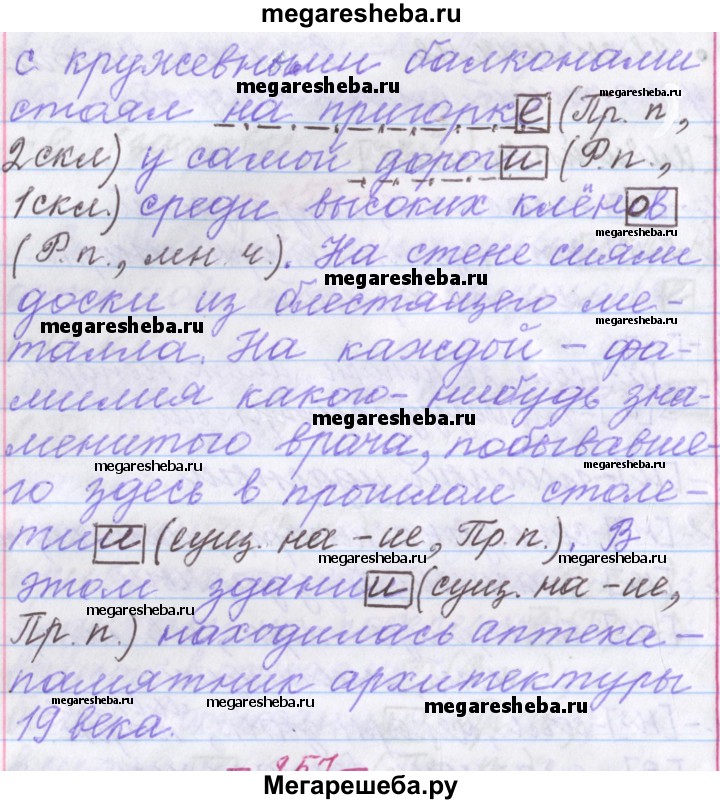 megaresheba.ru
с кружевными балконами
megaresheba.ru
megaresheba.ru
стоял на пригорке (Пр. п.,
2скл) у самой дороги (Р.п.,
megaresheba.ru
1скл.) среди высоких клёнов
megaresheba.ru
(Р. п., мн. ч.). На стене сияли
megaresheba.ru
доски из блестящего ме-
megaresheba.ru
megaresheba.ru
талла. На каждой – фа-
милия какого-нибудь зна-
megaresheba.ru
менитого врача, побывавше-
megaresheba.ru
megaresheba.ru
го здесь в прошлом столе-
тии (сущ. на -ие, Пр. п.). В
megaresheba.ru
этом здании (сущ. на -ие,
megaresheba.ru
megaresheba.ru
Пр. п.) находилась аптека –
памятник архитектуры
megaresheba.ru
megaresheba.ru
megaresheba.ru
19 века.
Мегарешеба.ру